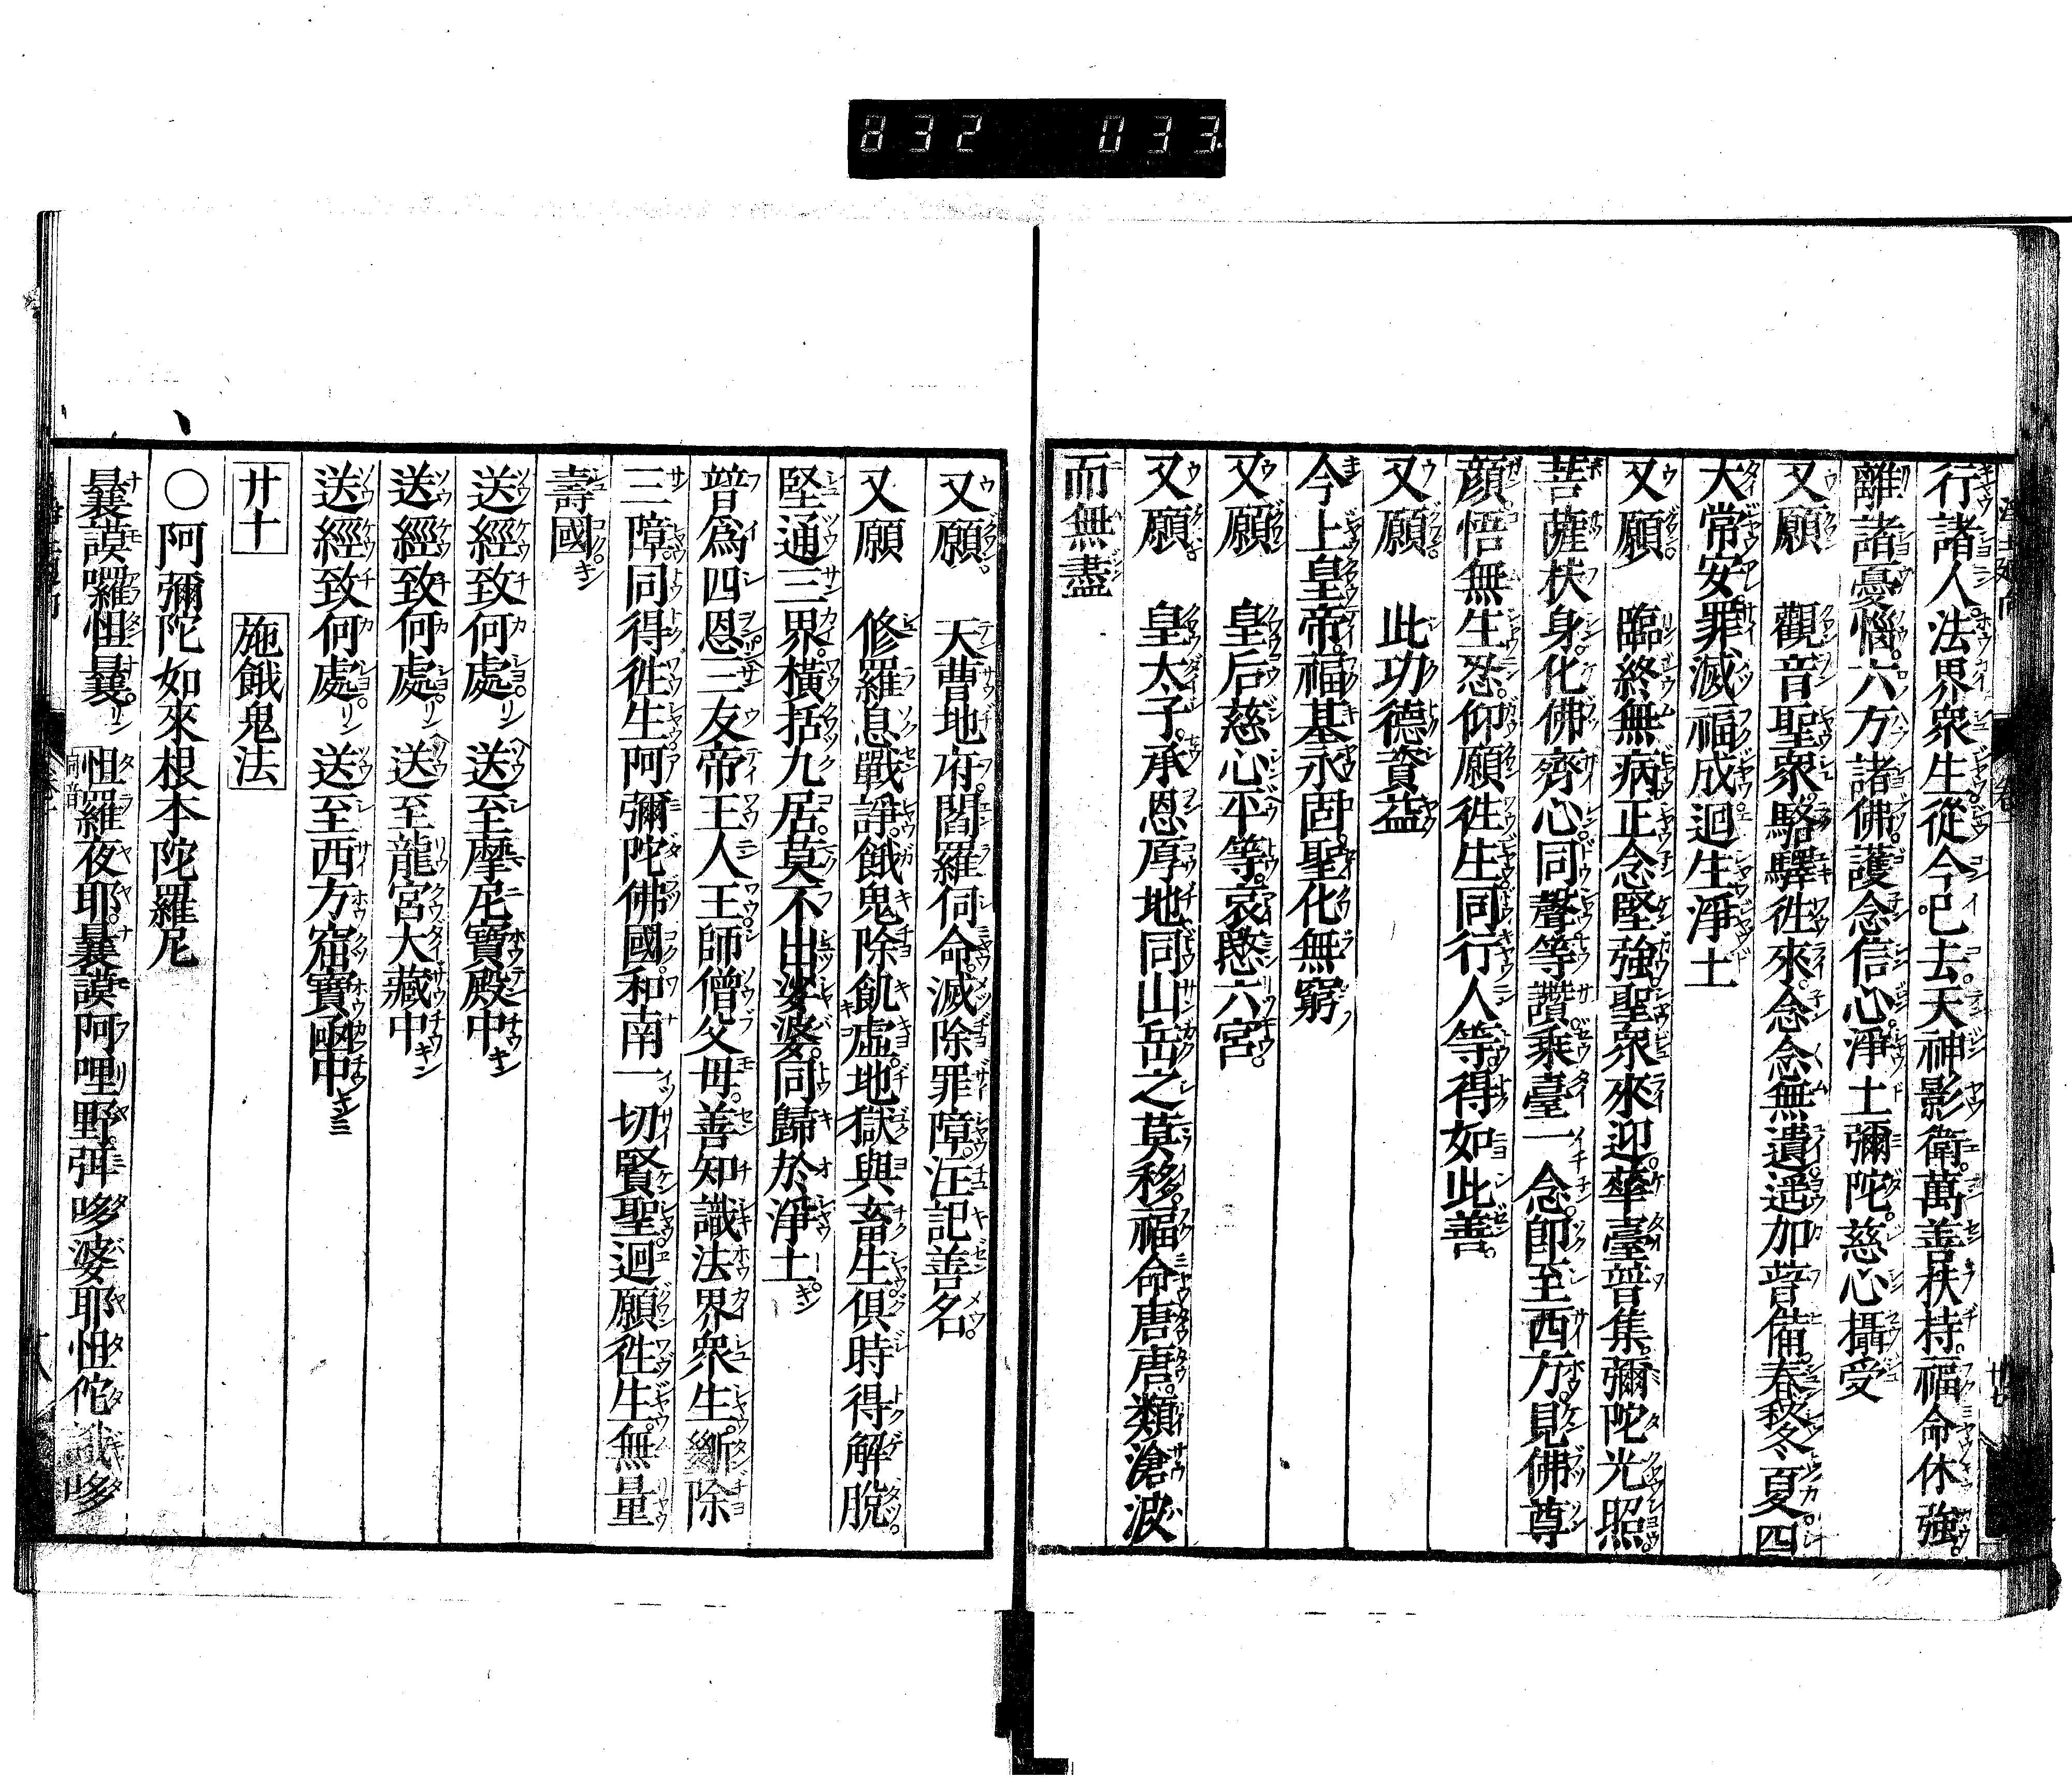 832 033
行諸人法界衆生從今已去天神影衛萬善扶持福命休強
離諸憂惱六方諸佛護念信心淨土彌陀慈心攝受
又願 觀音聖衆駱驛徃來念念無遺遥加普備春秋冬夏四
大常安罪滅福成迴生淨土
又願 臨終無病正念堅強聖衆來迎華臺普集彌陀光照
菩薩扶身化佛齊心同聲等讚乘臺一念即至西方見佛尊
顔悟無生忍仰願徃生同行人等得如此善
又願 此功德資益
今上皇帝福基永固聖化無窮
又願 皇后慈心平等哀愍六宮
又願 皇太子承恩厚地同山岳之莫移福命唐唐類滄波
而無盡
又願 天曹地府閻羅伺命滅除罪障注記善名
又願 修羅息戰諍餓鬼除飢虛地獄與畜生俱時得解脫
堅通三界橫括九居莫不出娑婆同歸於淨土
普爲四恩三友帝王人王師僧父母善知識法界衆生斷除
三障同得徃生阿彌陀佛國和南一切賢聖迴願徃生無量
壽國
送經致何處 送至摩尼寶殿中
送經致何處 送至龍宮大藏中
送經致何處 送至西方窟寶凾中
廿十 施餓鬼法
〇阿彌陀如來根本陀羅尼
曩謨囉怛曩 怛羅夜耶曩謨阿哩野弭哆婆耶怛佗識哆